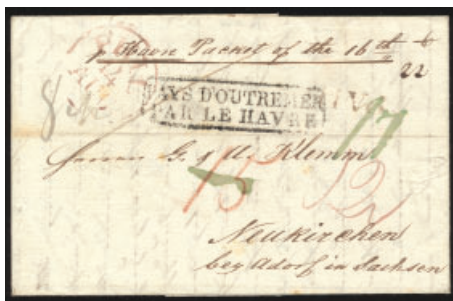 p Havre Packet of the 16th
22
PAYS D'OUTREMER
PAR LE HAVRE
Herren G. & A. Klemm
15
12
Neukirchen
bey Adorf in Sachsen